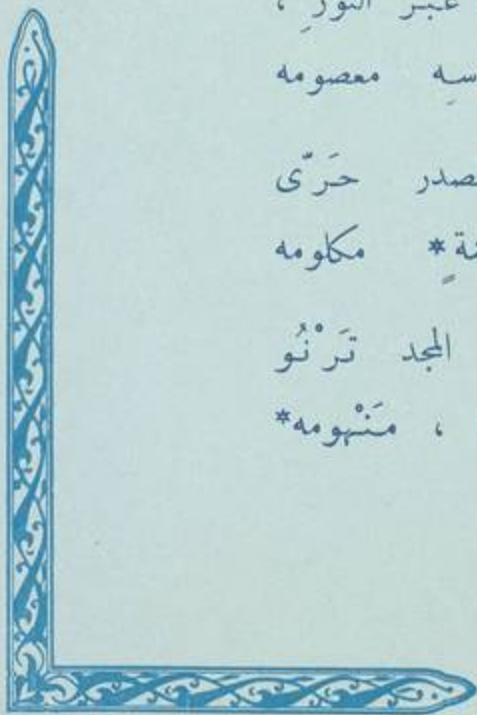 عبر النور ،
معصومه
حَرّى
* مكلومه
المجد تَرْنُو
، مَنْهومه*